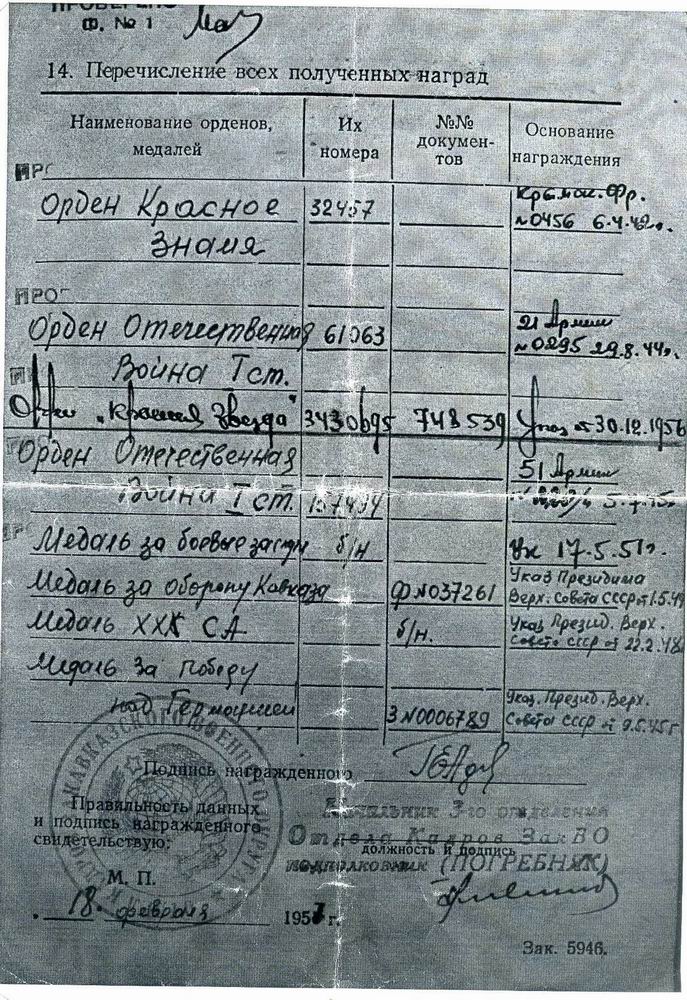 ПРОВЕРЕНО
Ф. № 1
14. Перечисление всех полученных наград
Наименование орденов, медалей
Их номера
№№ документов
Основание награждения
Орден Красное 32457 Крымск. Фр.
Знамя №0456 6.4.42г.
Орден Отечественная 61063 21 Армии
Война I ст. №0295 29.8.44г.
Орден „Красная Звезда" 3430695 748539 Указ от 30.12.1956
Орден Отечественная 51 Армии
Война I ст.
Медаль за боевые заслуги б/н Ук 17.5.51г.
Медаль за оборону Кавказа Ф №037261 Указ Президиума
Верх. Совета СССР от 1.5.44
Медаль XXX СА б/н. Указ Презид. Верх.
Совета СССР от 22.2.48
Медаль за победу
над Германией З №0006789 Указ. Презид. Верх.
Совета СССР от 9.5.45г
Подпись награжденного
Правильность данных
и подпись награжденного
свидетельствую:
Начальник 3-го отделения
Отдела Кадров ЗакВО
должность и подпись
подполковник (ПОГРЕБНЯК)
М. П.
18. февраля 1957 г.
Зак. 5946.